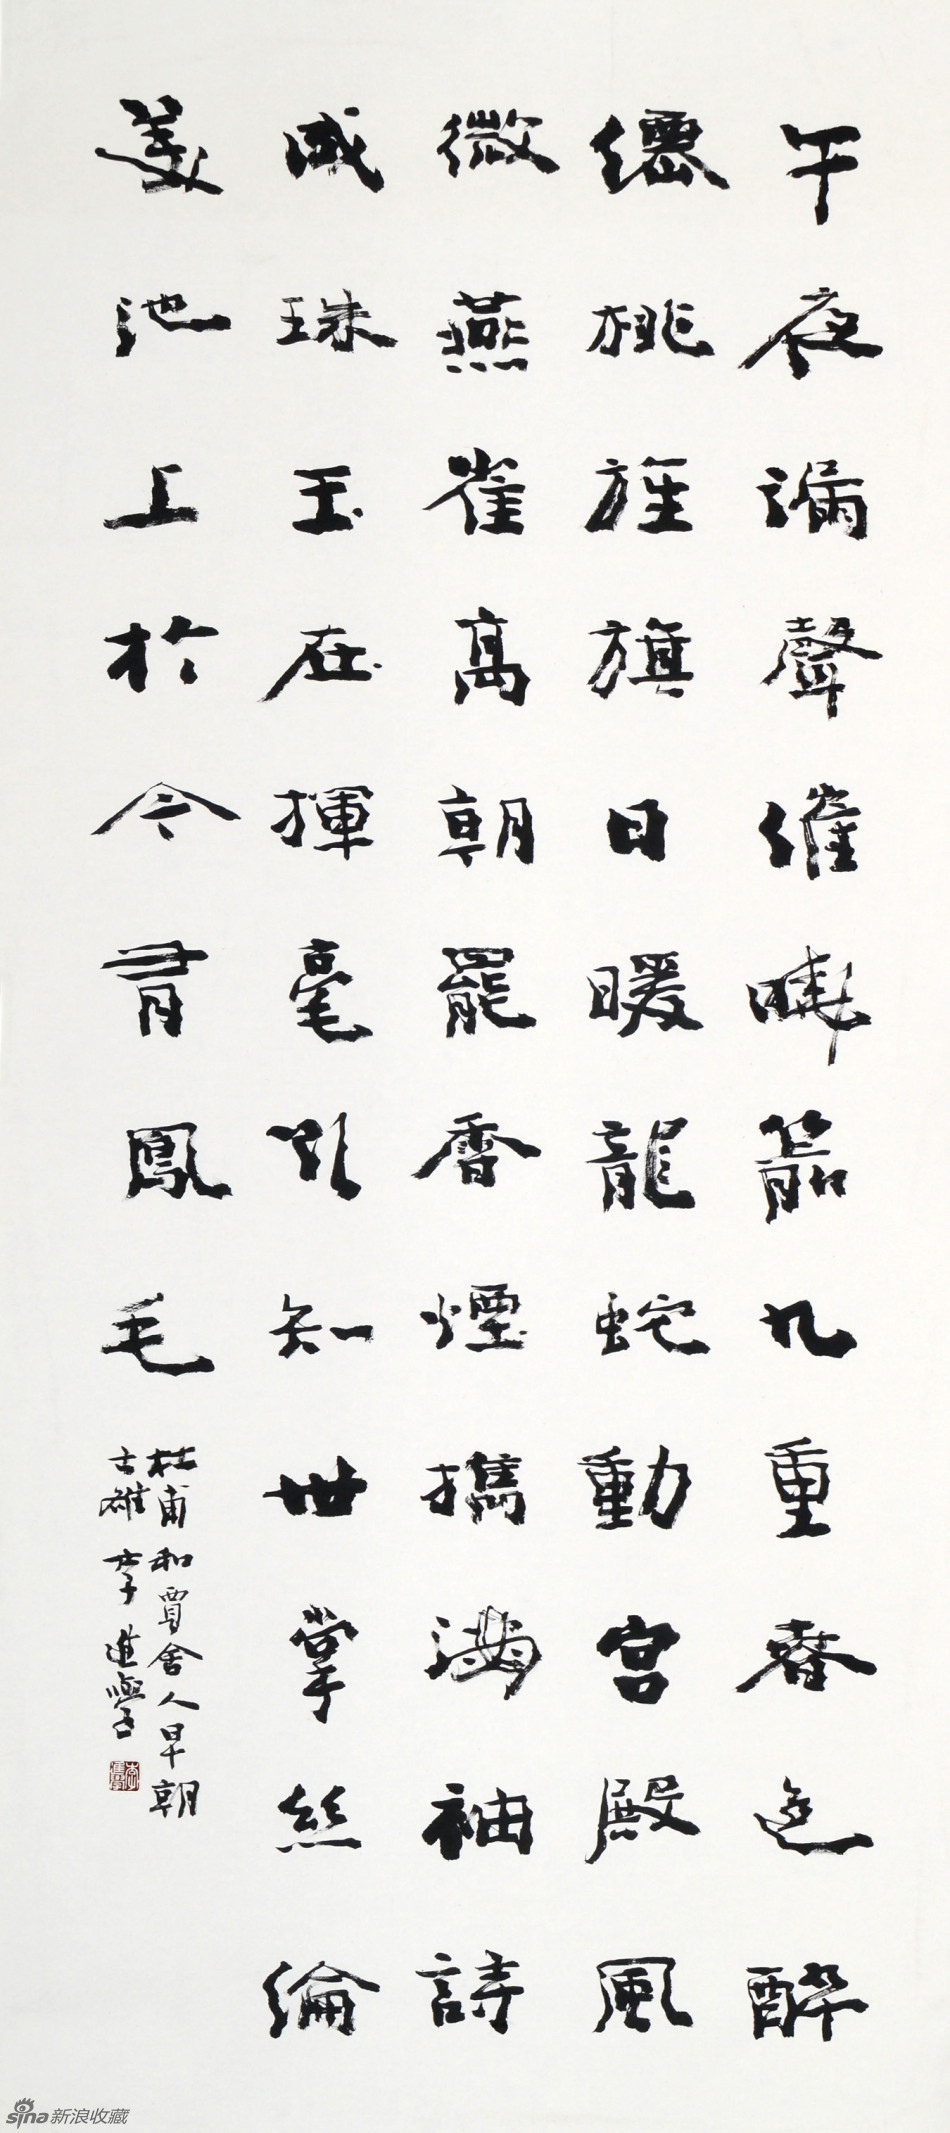 午夜漏聲催曉箭九重春色醉
僊桃旌旗日暖龍蛇動宮殿風
微燕雀高朝罷香煙攜滿袖詩
成珠玉在揮毫欲知世掌絲綸
美池上於今有鳳毛
杜甫和賈舍人早朝
古雄李進學
sina新浪收藏